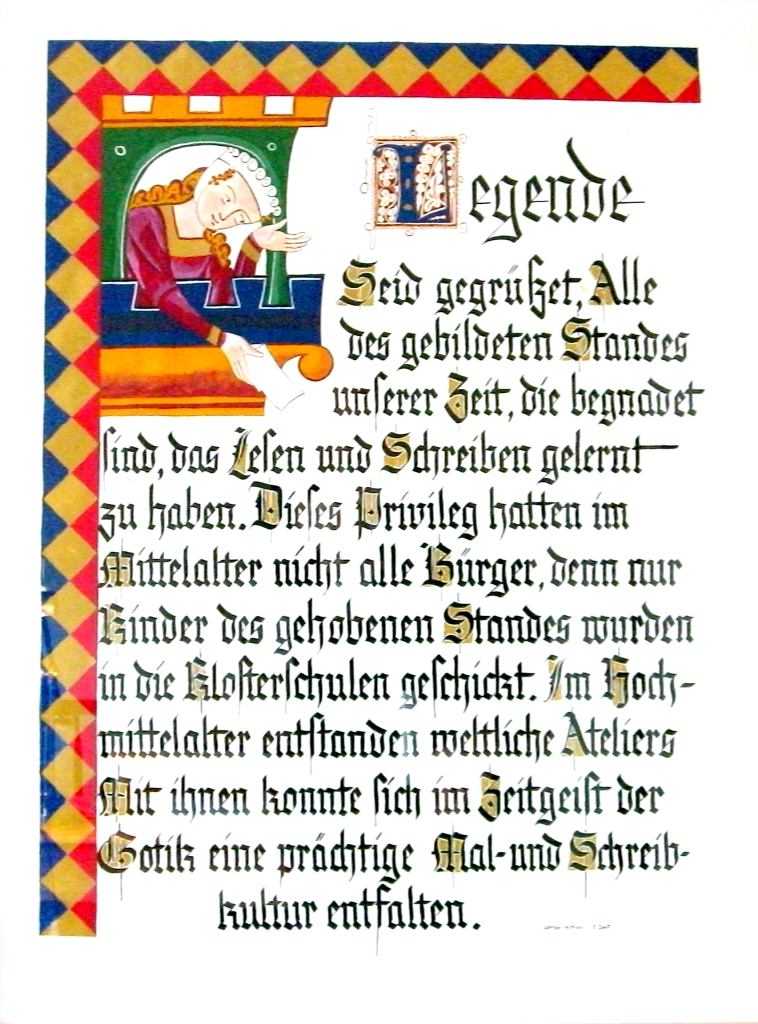 Legende
Seid gegrüßet, Alle
des gebildeten Standes
unserer Zeit, die begnadet
sind, das Lesen und Schreiben gelernt
zu haben. Dieses Privileg hatten im
Mittelalter nicht alle Bürger, denn nur
Kinder des gehobenen Standes wurden
in die Klosterschulen geschickt. Im Hoch-
mittelalter entstanden weltliche Ateliers
Mit ihnen konnte sich im Zeitgeist der
Gotik eine prächtige Mal- und Schreib-
kultur entfalten.